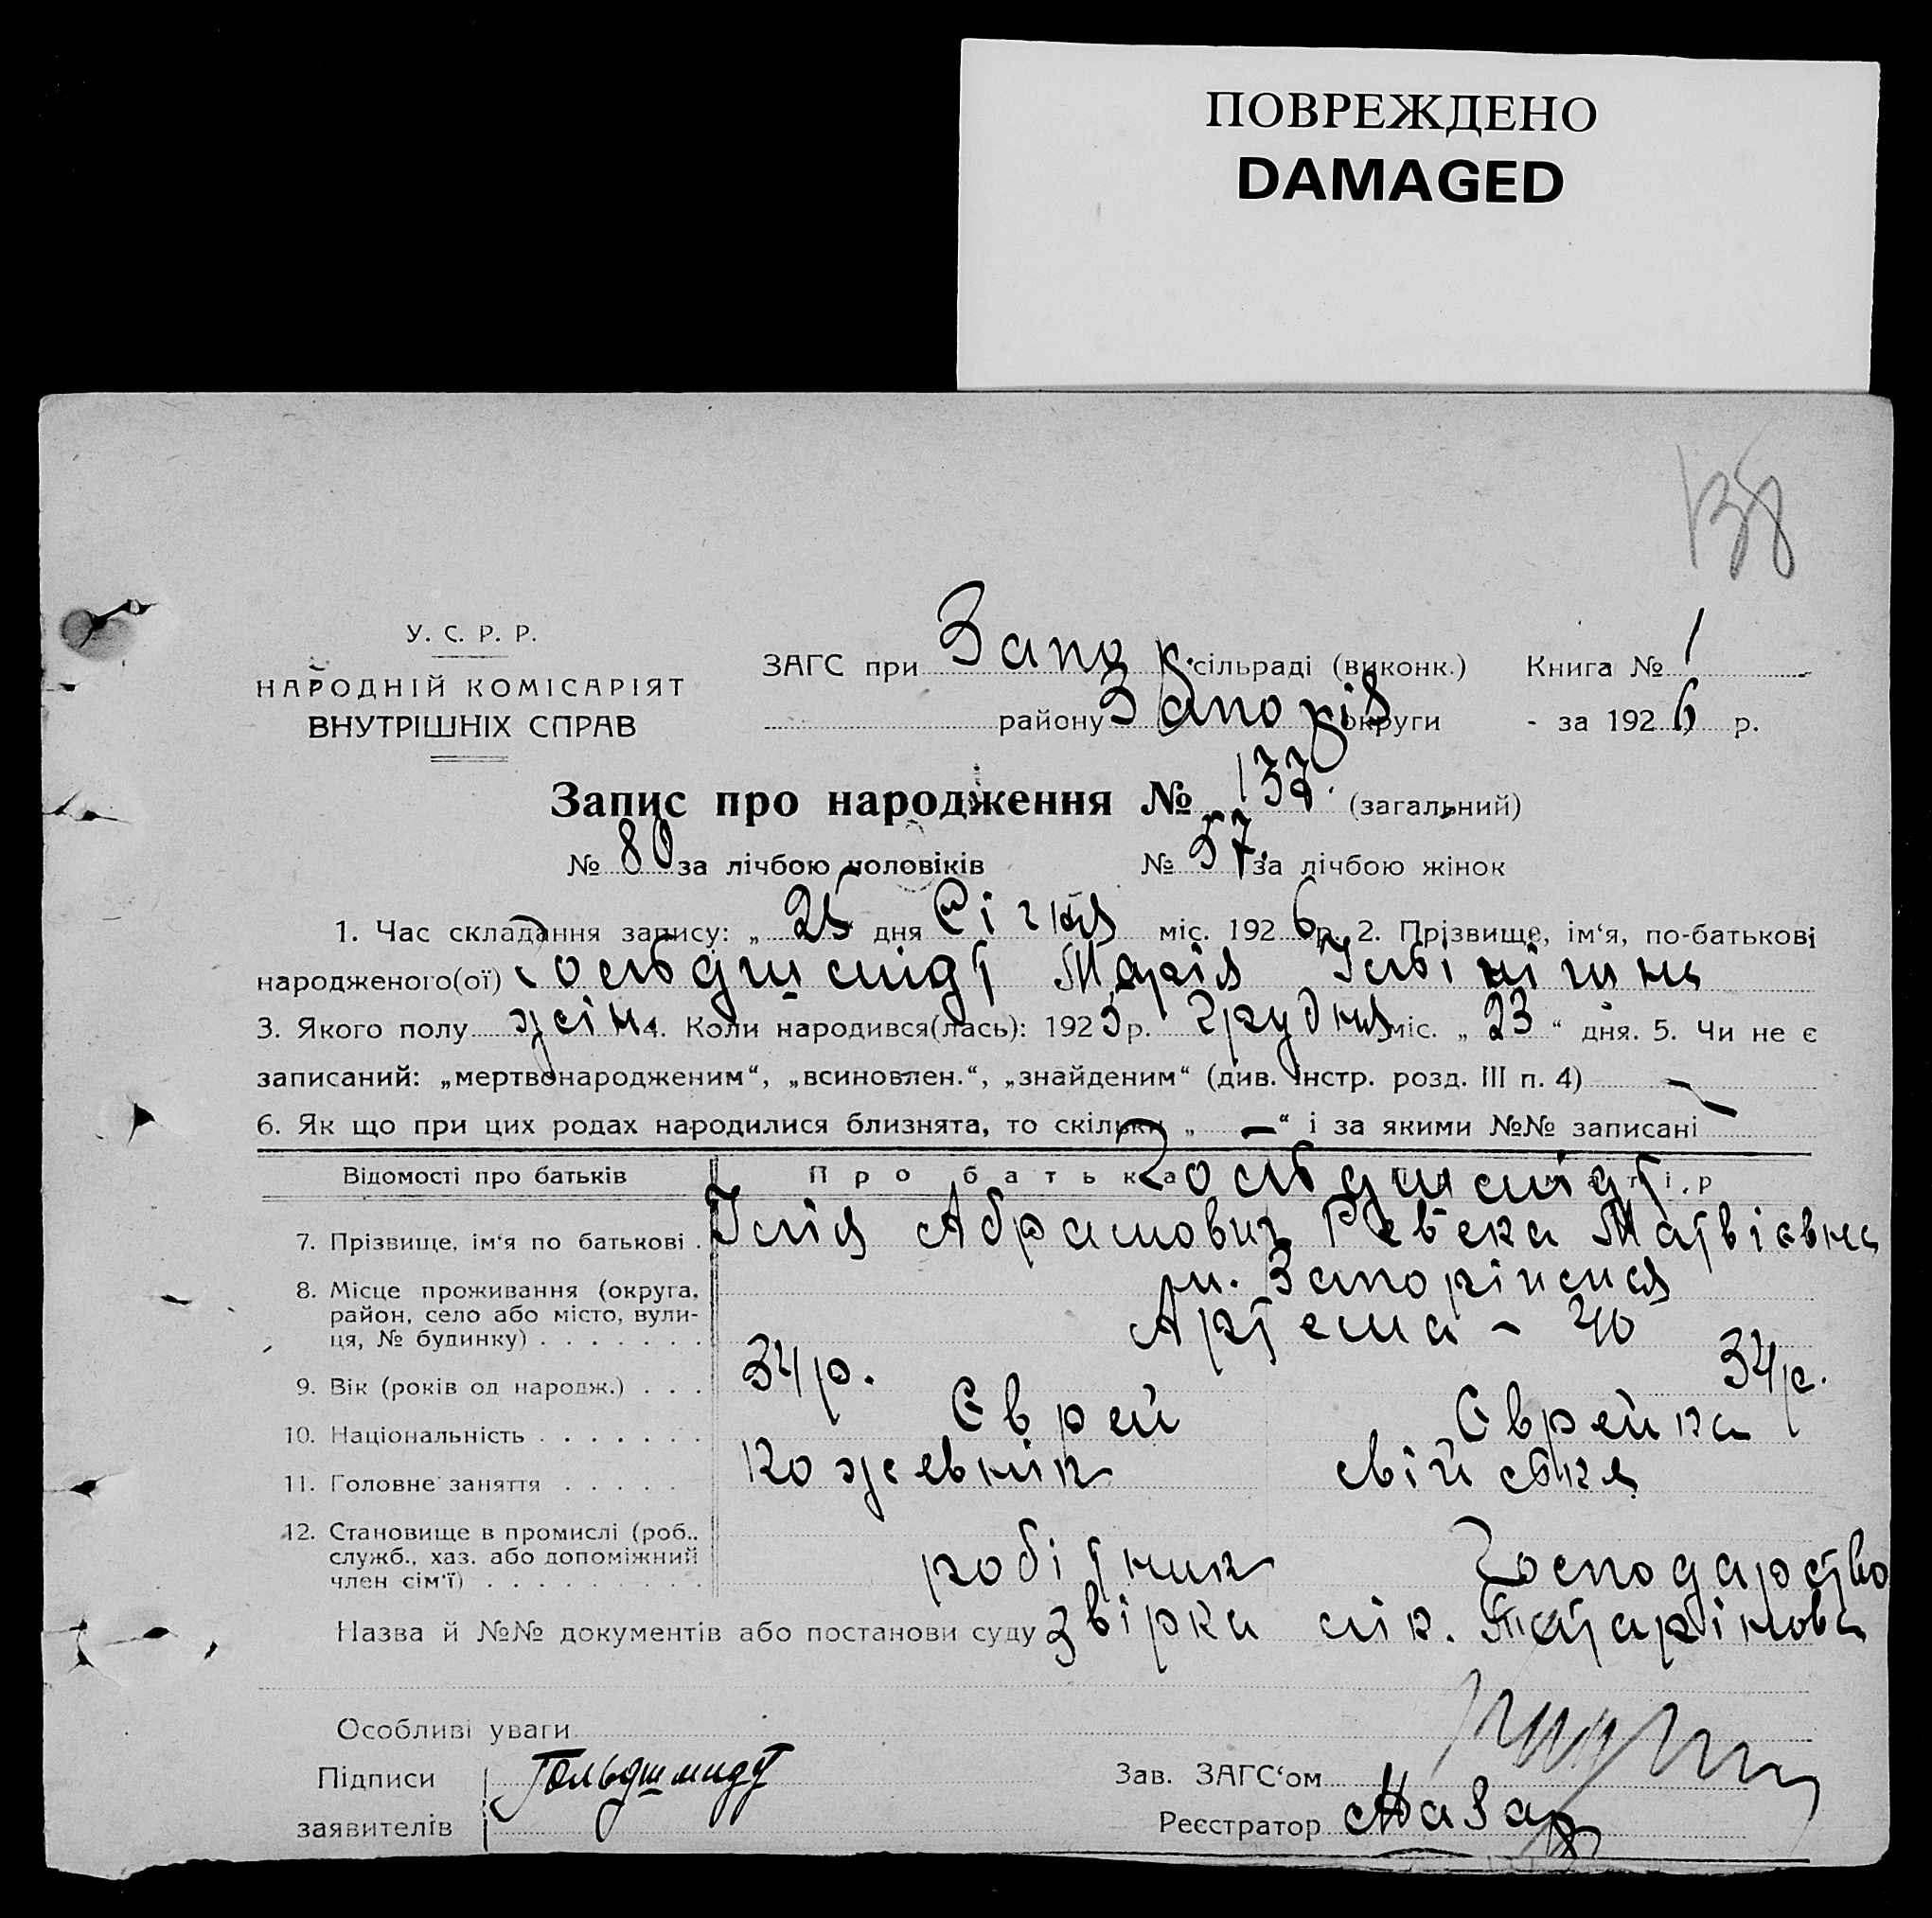 ПОВРЕЖДЕНО
DAMAGED
138
У. С. Р. Р.
НАРОДНІЙ КОМІСАРІЯТ
ВНУТРІШНІХ СПРАВ
ЗАГС при Запор. сільраді (виконк.) Книга № 1
району Запоріз округи - за 1926 р.
Запис про народження № 137. (загальний)
№ 80 за лічбою чоловіків № 57. за лічбою жінок
1. Час складання запису: „ 25 дня Січня міс. 1926 р. 2. Прізвище, ім‘я, по-батькові
народженого(ої) Гольдшмідт Марія Ільінішна
3. Якого полу жін 4. Коли народився(лась): 1925 р. Грудня міс. „ 23 “ дня. 5. Чи не є
записаний: „мертвонародженим“, „всиновлен.“, „знайденим“ (див. інстр. розд. III п. 4) —
6. Як що при цих родах народилися близнята, то скільки „ — “ і за якими №№ записані —
Відомості про батьків Про батька Гольдшмідт
7. Прізвище, ім‘я по батькові . Ілія Абрамович Ревека Матвієвна
8. Місце проживання (округа, м. Запоріжжя
район, село або місто, вули- Артема - 40
ця, № будинку) . . . . . . .
9. Вік (років од народж.) . . . 34 р. 34 р.
10. Національність . . . . . . . Єврей Єврейка
11. Головне заняття . . . . . Кожевнік свійська
12. Становище в промислі (роб.,
служб., хаз. або допоміжний робітник Господарство
член сім‘ї) . . . . . . . . .
Назва й №№ документів або постанови суду Звірка лік. Татарінова
Особливі уваги
Підписи Гольдшмидт Зав. ЗАГС‘ом
заявителів Реєстратор Назар